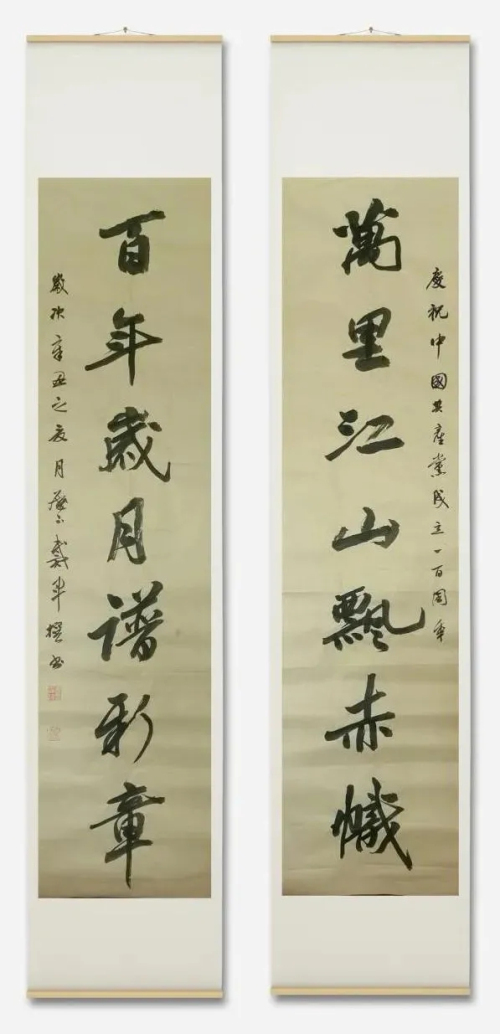 慶祝中國共產黨成立一百周年
萬里江山飄赤幟
百年歲月譜新章
歲次辛丑之夏月戴撰書